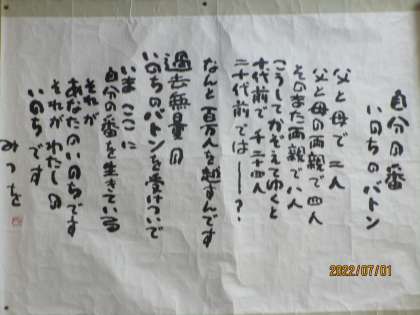 自分の番
いのちのバトン
父と母で二人
父と母の両親で四人
そのまた両親で八人
こうしてかぞえてゆくと
十代前で千二十四人
二十代前では――？
なんと百万人を越すんです
過去無量の
いのちのバトンを受けついで
いまここに
自分の番を生きている
それが
あなたのいのちです
それがわたしの
いのちです
みつを
2022/07/01